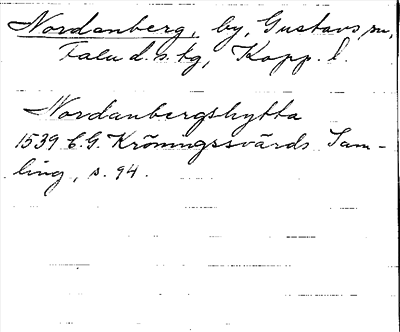 Nordanberg, by, Gustavs sn,
Falu d.s. tg, Kopp. l.
Nordanbergshytta
1539 C.G. Kröningssvärds Sam-
ling, s. 94.